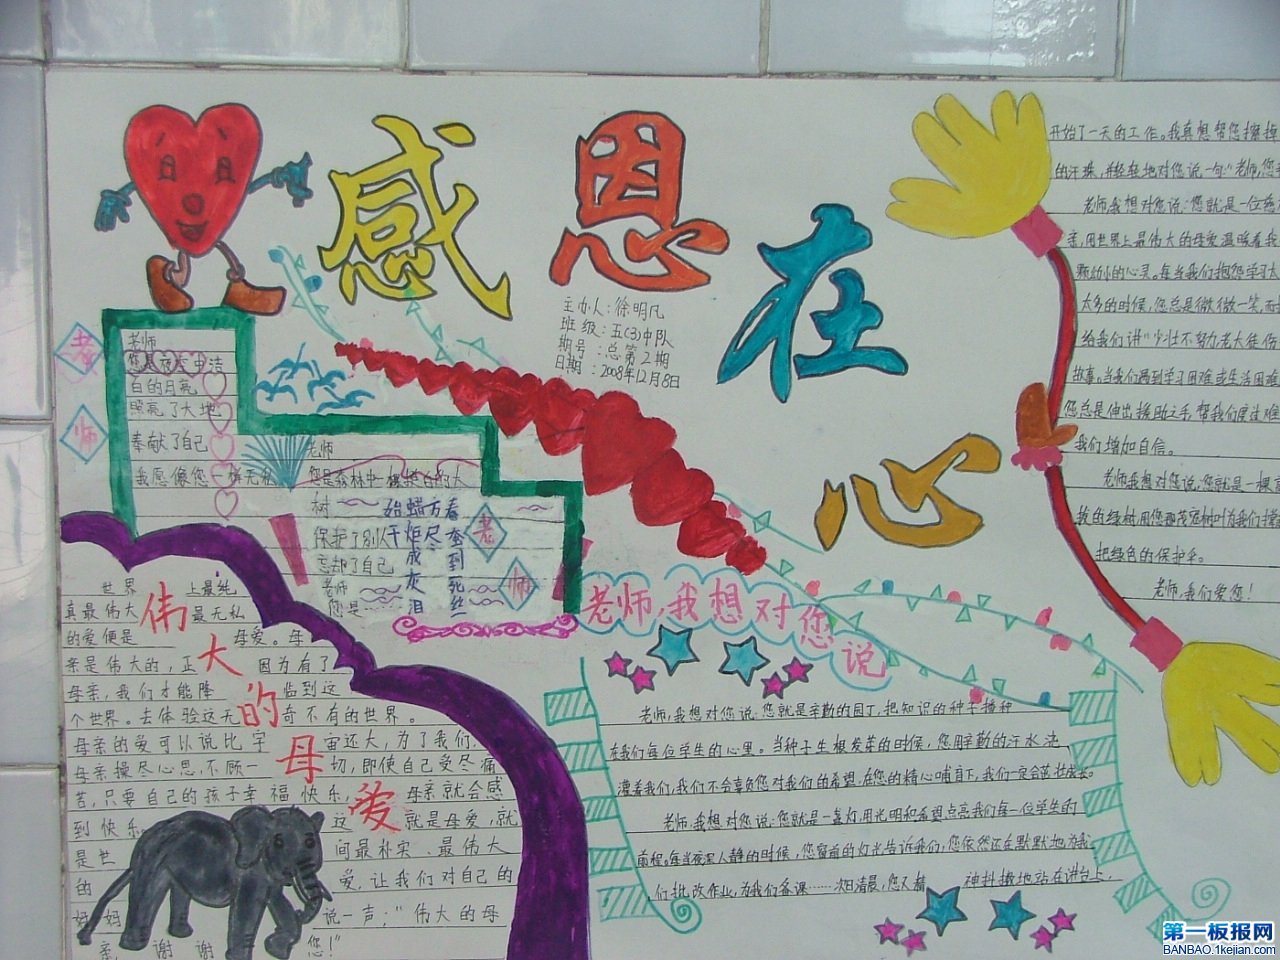 感恩在心
主办人:徐明凡
班级:五(3)中队
期号:总第2期
日期:2008年12月8日
老师
老师
您是夜空中洁
白的月亮
照亮了大地
奉献了自己
我愿像您一样无私
老师
您是森林中一棵挺拔的大
树
保护了别人
忘却了自己
老师
您是
春蚕到死丝
方尽
蜡炬成灰泪
始干
老师
世界上最纯
真最伟大最无私
的爱便是母爱。母
亲是伟大的,正因为有了
母亲,我们才能降临到这
个世界。去体验这无奇不有的世界。
母亲的爱可以说比宇宙还大,为了我们,
母亲操尽心思,不顾一切,即使自己受尽痛
苦,只要自己的孩子幸福快乐,母亲就会感
到快乐。这就是母爱,就
是世间最朴实、最伟大
的爱,让我们对自己的
妈妈说一声:“伟大的母
亲,谢谢您!”
伟大的母爱
老师,我想对您说
老师,我想对您说:您就是辛勤的园丁,把知识的种子播种
在我们每位学生的心里。当种子生根发芽的时候,您用辛勤的汗水浇
灌着我们,我们不会辜负您对我们的希望,在您的精心哺育下,我们一定会茁壮成长。
老师,我想对您说:您就是一盏灯,用光明和希望点亮我们每一位学生的
前程。每当夜深人静的时候,您窗前的灯光告诉我们,您依然还在默默地为我
们批改作业,为我们备课……次日清晨,您又精神抖擞地站在讲台上,
开始了一天的工作。我真想帮您擦掉
的汗珠,并轻轻地对您说一句:“老师,您
老师,我想对您说:您就是一位慈
亲,用世界上最伟大的母爱温暖着我
颗幼小的心灵。每当我们抱怨学习太
太多的时候,您总是微微一笑,而
给我们讲“少壮不努力老大徒伤
故事。当我们遇到学习困难或生活困难
您总是伸出援助之手,帮我们度过难
我们增加自信。
老师我想对您说:您就是一棵高
拔的绿树用您那茂密树叶为我们撑
把绿色的保护伞。
老师,我们爱您!
第一板报网
BANBAO.1kejian.com